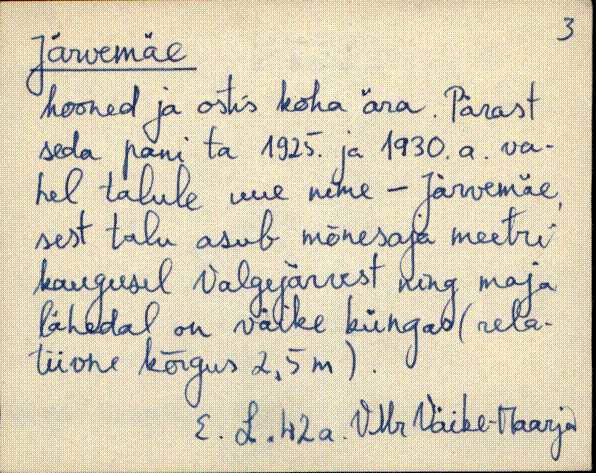 3
Järvemäe
hooned ja ostis koha ära. Pärast
seda pani ta 1925. ja 1930. a. va-
hel talule uue nime - Järvemäe,
sest talu asub mõnesaja meetri
kaugusel Valgejärvest ning maja
lähedal on väike küngas (rela-
tiivne kõrgus 2,5 m).
E. L. 42 a. VMr Väike-Maarja